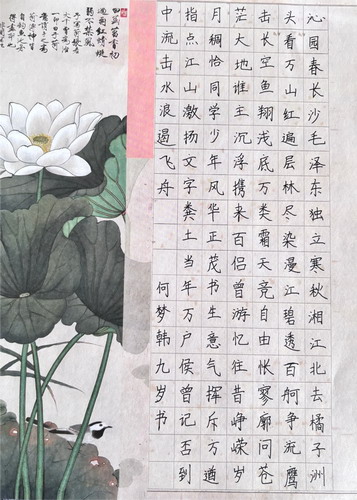 沁园春长沙毛泽东独立寒秋湘江北去橘子洲
头看万山红遍层林尽染漫江碧透百舸争流鹰
击长空鱼翔浅底万类霜天竞自由怅寥廓问苍
茫大地谁主沉浮携来百侣曾游忆往昔峥嵘岁
月稠恰同学少年风华正茂书生意气挥斥万遒
指点江山激扬文字粪土当年万户侯曾记否到
中流击水浪遏飞舟何梦韩九岁书